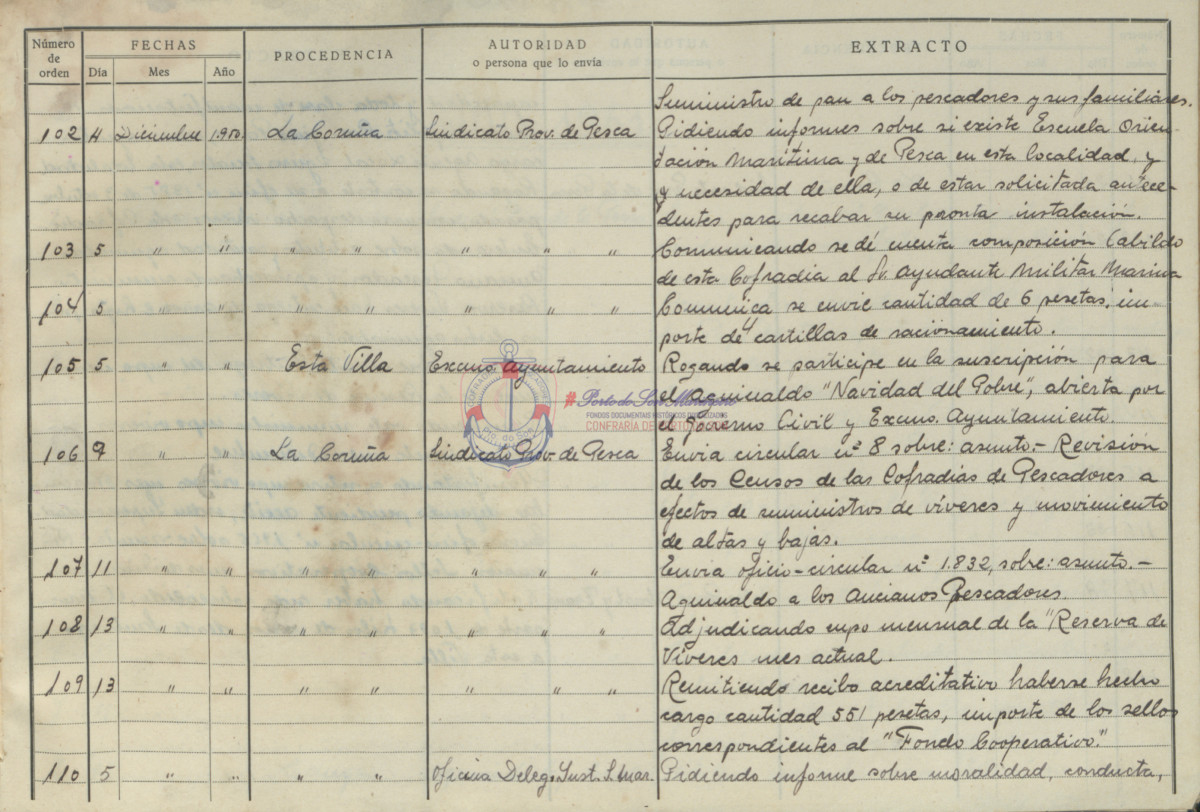 Número de orden | FECHAS | PROCEDENCIA | AUTORIDAD o persona que lo envía | EXTRACTO
Día | Mes | Año
Suministro de pan a los pescadores y sus familiares.
102 4 Diciembre 1.950. La Coruña Sindicato Prov. de Pesca Pidiendo informes sobre si existe Escuela Orien-
tación Maritima y de Pesca en esta localidad, y
y necesidad de ella, o de estar solicitada antece-
dentes para recabar su pronta instalación.
103 5 " " " " " " " Comunicando se dé cuenta composición Cabildo
de esta Cofradia al Sr. Ayudante Militar Marina
104 5 " " " " " " " Comunica se envie cantidad de 6 pesetas, im-
porte de 4 cartillas de racionamiento.
105 5 " " Esta Villa Excmo. Ayuntamiento Rogando se participe en la suscripción para
el Aguinaldo "Navidad del Pobre", abierta por
el Goierno Civil y Excmo. Ayuntamiento.
106 9 " " La Coruña Sindicato Prov. de Pesca Envia circular nº 8 sobre: asunto.- Revisión
de los Censos de las Cofradias de Pescadores a
efectos de suministros de víveres y movimiento
de altas y bajas.
107 11 " " " " " " " Envia oficio-circular nº 1.832, sobre: asunto.-
Aguinaldo a los Ancianos Pescadores.
108 13 " " " " " " " Adjudicando cupo mensual de la "Reserva de
Víveres mes actual.
109 13 " " " " " " " Remitiendo recibo acreditativo haberse hecho
cargo cantidad 551 pesetas, importe de los sellos
correspondientes al "Fondo Cooperativo."
110 5 " " " " Oficina Deleg. Inst. S. Mar. Pidiendo informe sobre moralidad, conducta,
FONDOS DOCUMENTAIS HISTÓRICOS DIXITALIZADOS
CONFRARÍA DE PORTO DO SON